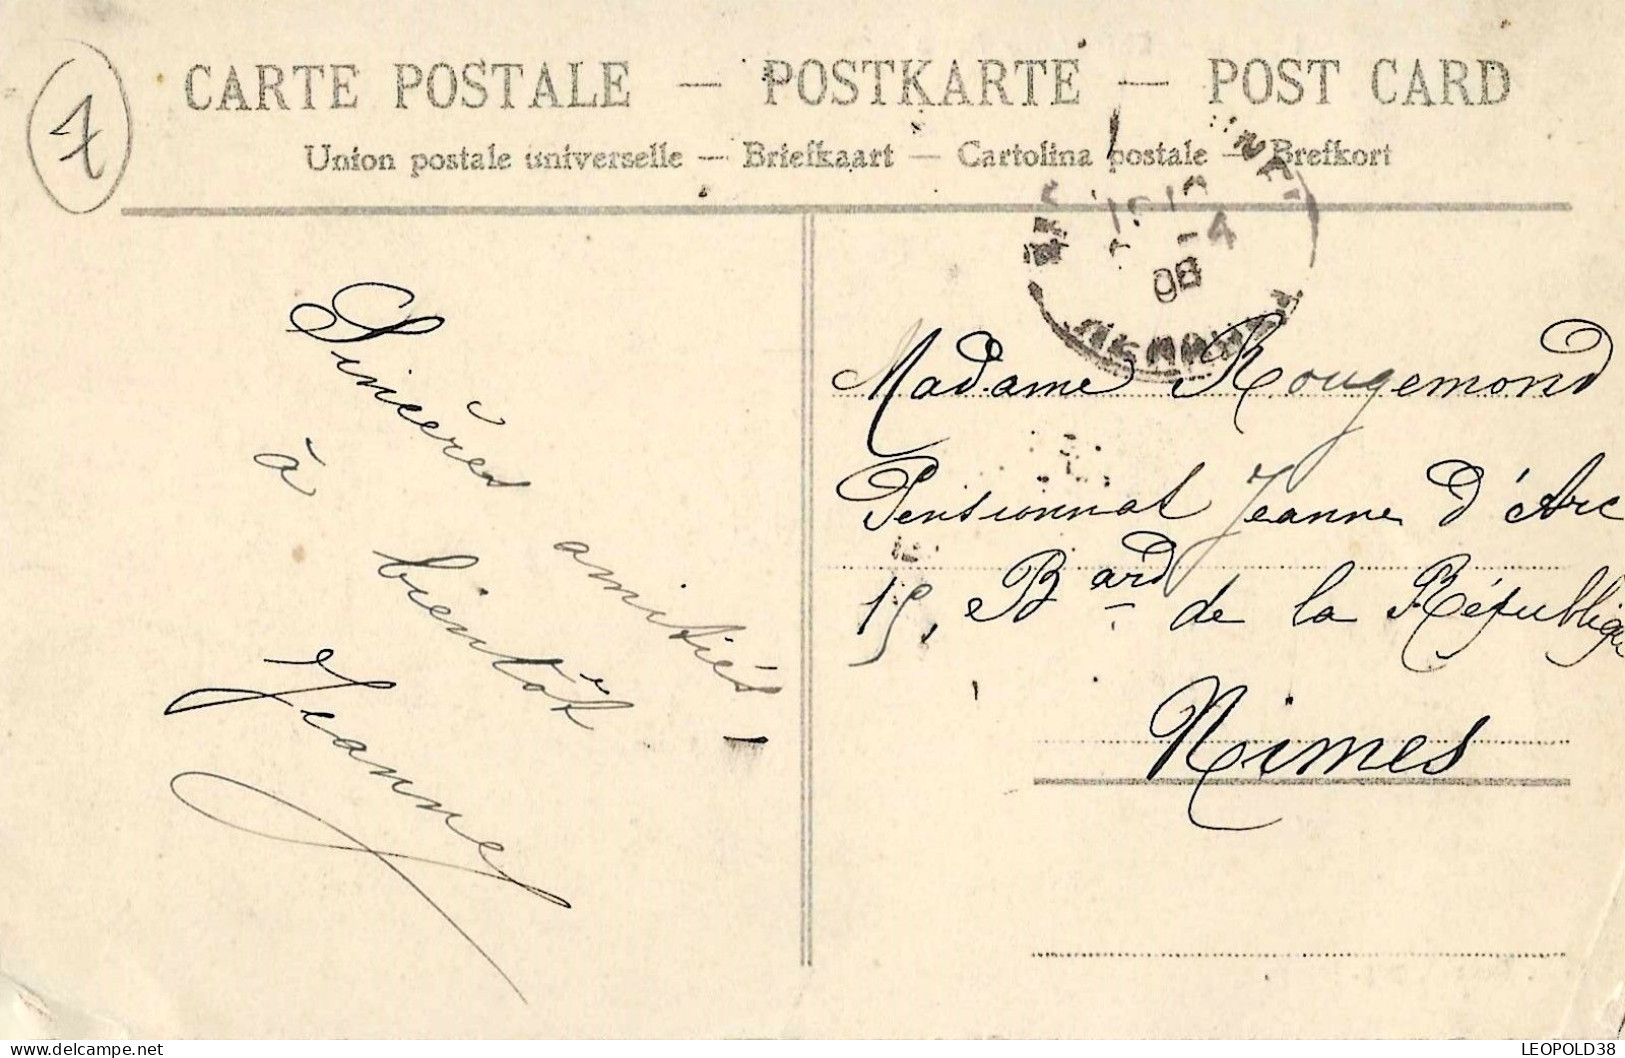 7
CARTE POSTALE — POSTKARTE — POST CARD
Union postale universelle — Briefkaart — Cartolina postale — Brefkort
-4
08
Sincères amitiés -
à bientôt
Jeanne
Madame Rougemond
Pensionnat Jeanne d'Arc
15, Bard de la République
Nimes
LEOPOLD38